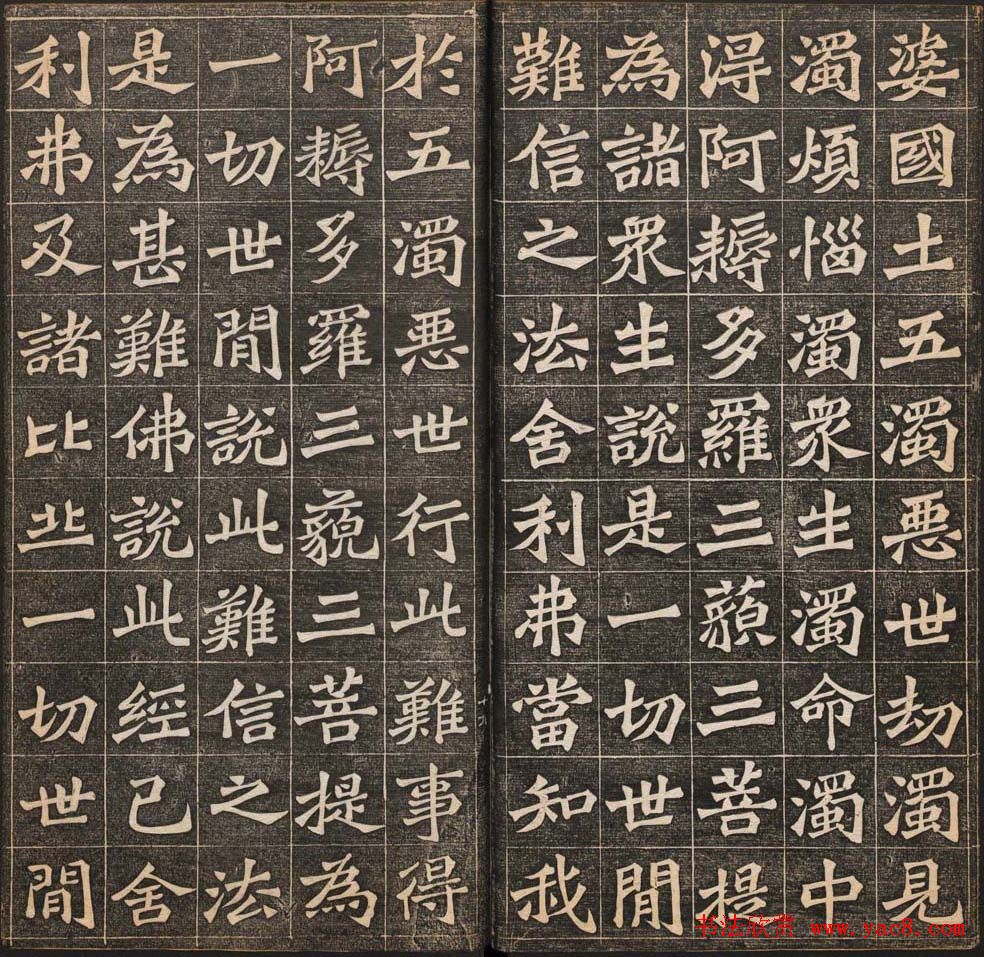 婆國土五濁惡世劫濁見
濁煩惱濁眾生濁命濁中
淂阿耨多羅三藐三菩提
為諸眾生說是一切世間
難信之法舍利弗當知我
於五濁惡世行此難事得
阿耨多羅三藐三菩提為
一切世間說此難信之法
是為甚難佛說此經已舍
利弗及諸比丘一切世間
十六
书法欣赏 www.yac8.com